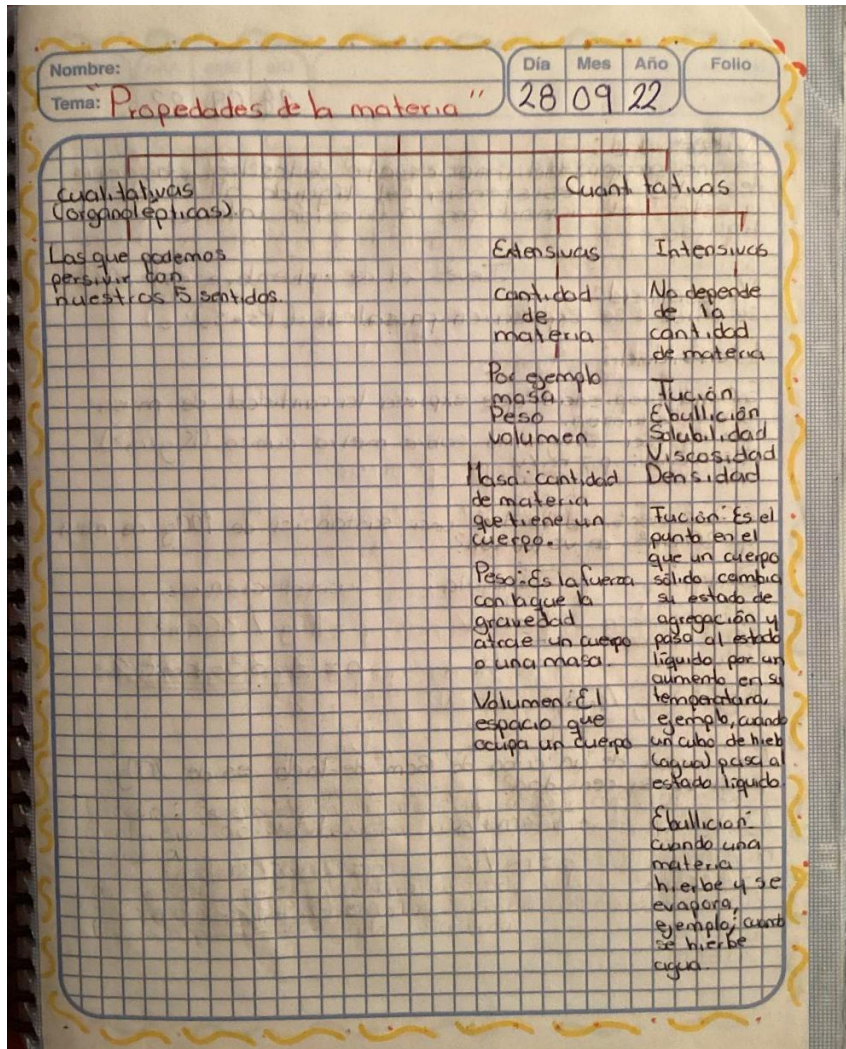 Nombre:
Tema: "Propedades de la materia"
Día Mes Año
28 09 22
Folio
Cualitativas
(organolépticas).
Las que podemos
persivir con
nuestros 5 sentidos.
Cuantitativas
Extensivas
cantidad
de
materia
Por ejemplo
masa
Peso
volumen
Masa: cantidad
de materia
que tiene un
cuerpo.
Peso: Es la fuerza
con la que la
gravedad
atrae un cuerpo
o una masa.
Volumen: El
espacio que
ocupa un cuerpo
Intensivas
No depende
de la
cantidad
de materia
Fución
Ebullición
Solubilidad
Viscosidad
Densidad
Fución: Es el
punto en el
que un cuerpo
sólido cambia
su estado de
agregación y
pasa al estado
líquido por un
aumento en su
temperatura,
ejemplo, cuando
un cubo de hielo
(agua) pasa al
estado líquido
Ebullición:
cuando una
materia
hierbe y se
evapora,
ejemplo; cuando
se hierbe
agua.